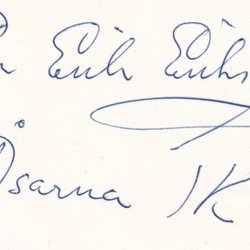 Erik Eriks
Åsarna IK